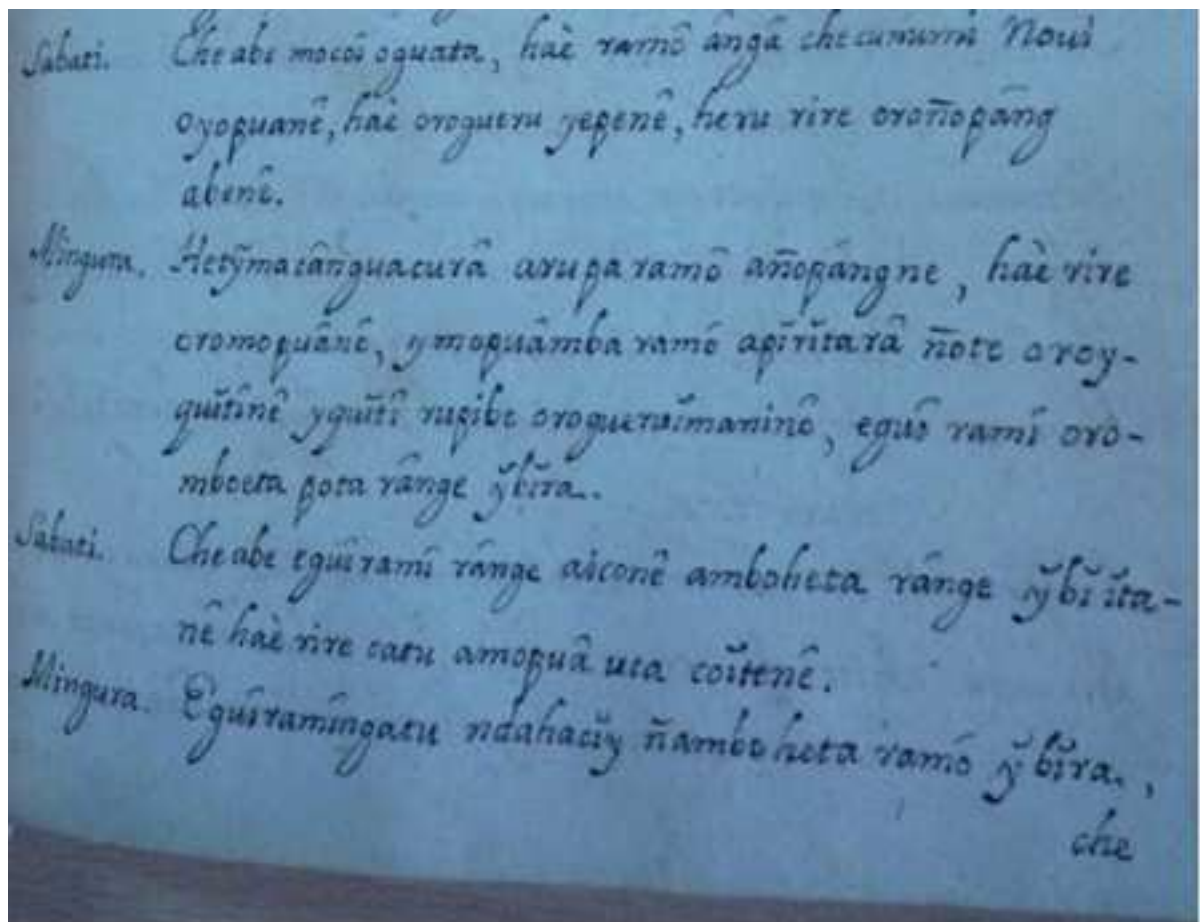 Sabati. Che abe mocôi oguata, haè ramô ângâ che cunumi Noui
oyopuanê, haè orogueru yepenê, heru rire oroñopâng
abenê.
Mingura. Hetỹmacânguacurâ arupa ramô añopángne, haè rire
oromopuânê, ymopuâmba ramô apĭrĭtarâ ñote oroy-
quĭtînê yquĭtî rupibe orogueruĭmaninê, eguî ramî oro-
mboeta pota rânge y̆bĭra.
Sabati. Che abe eguîramî rânge aiconê amboheta rânge y̆bĭ ĭta-
nê haè rire catu amopuâ uca coĭtenê.
Mingura. Eguîramîngatu ndahacĭy ñamboheta ramô y̆bĭra,
che